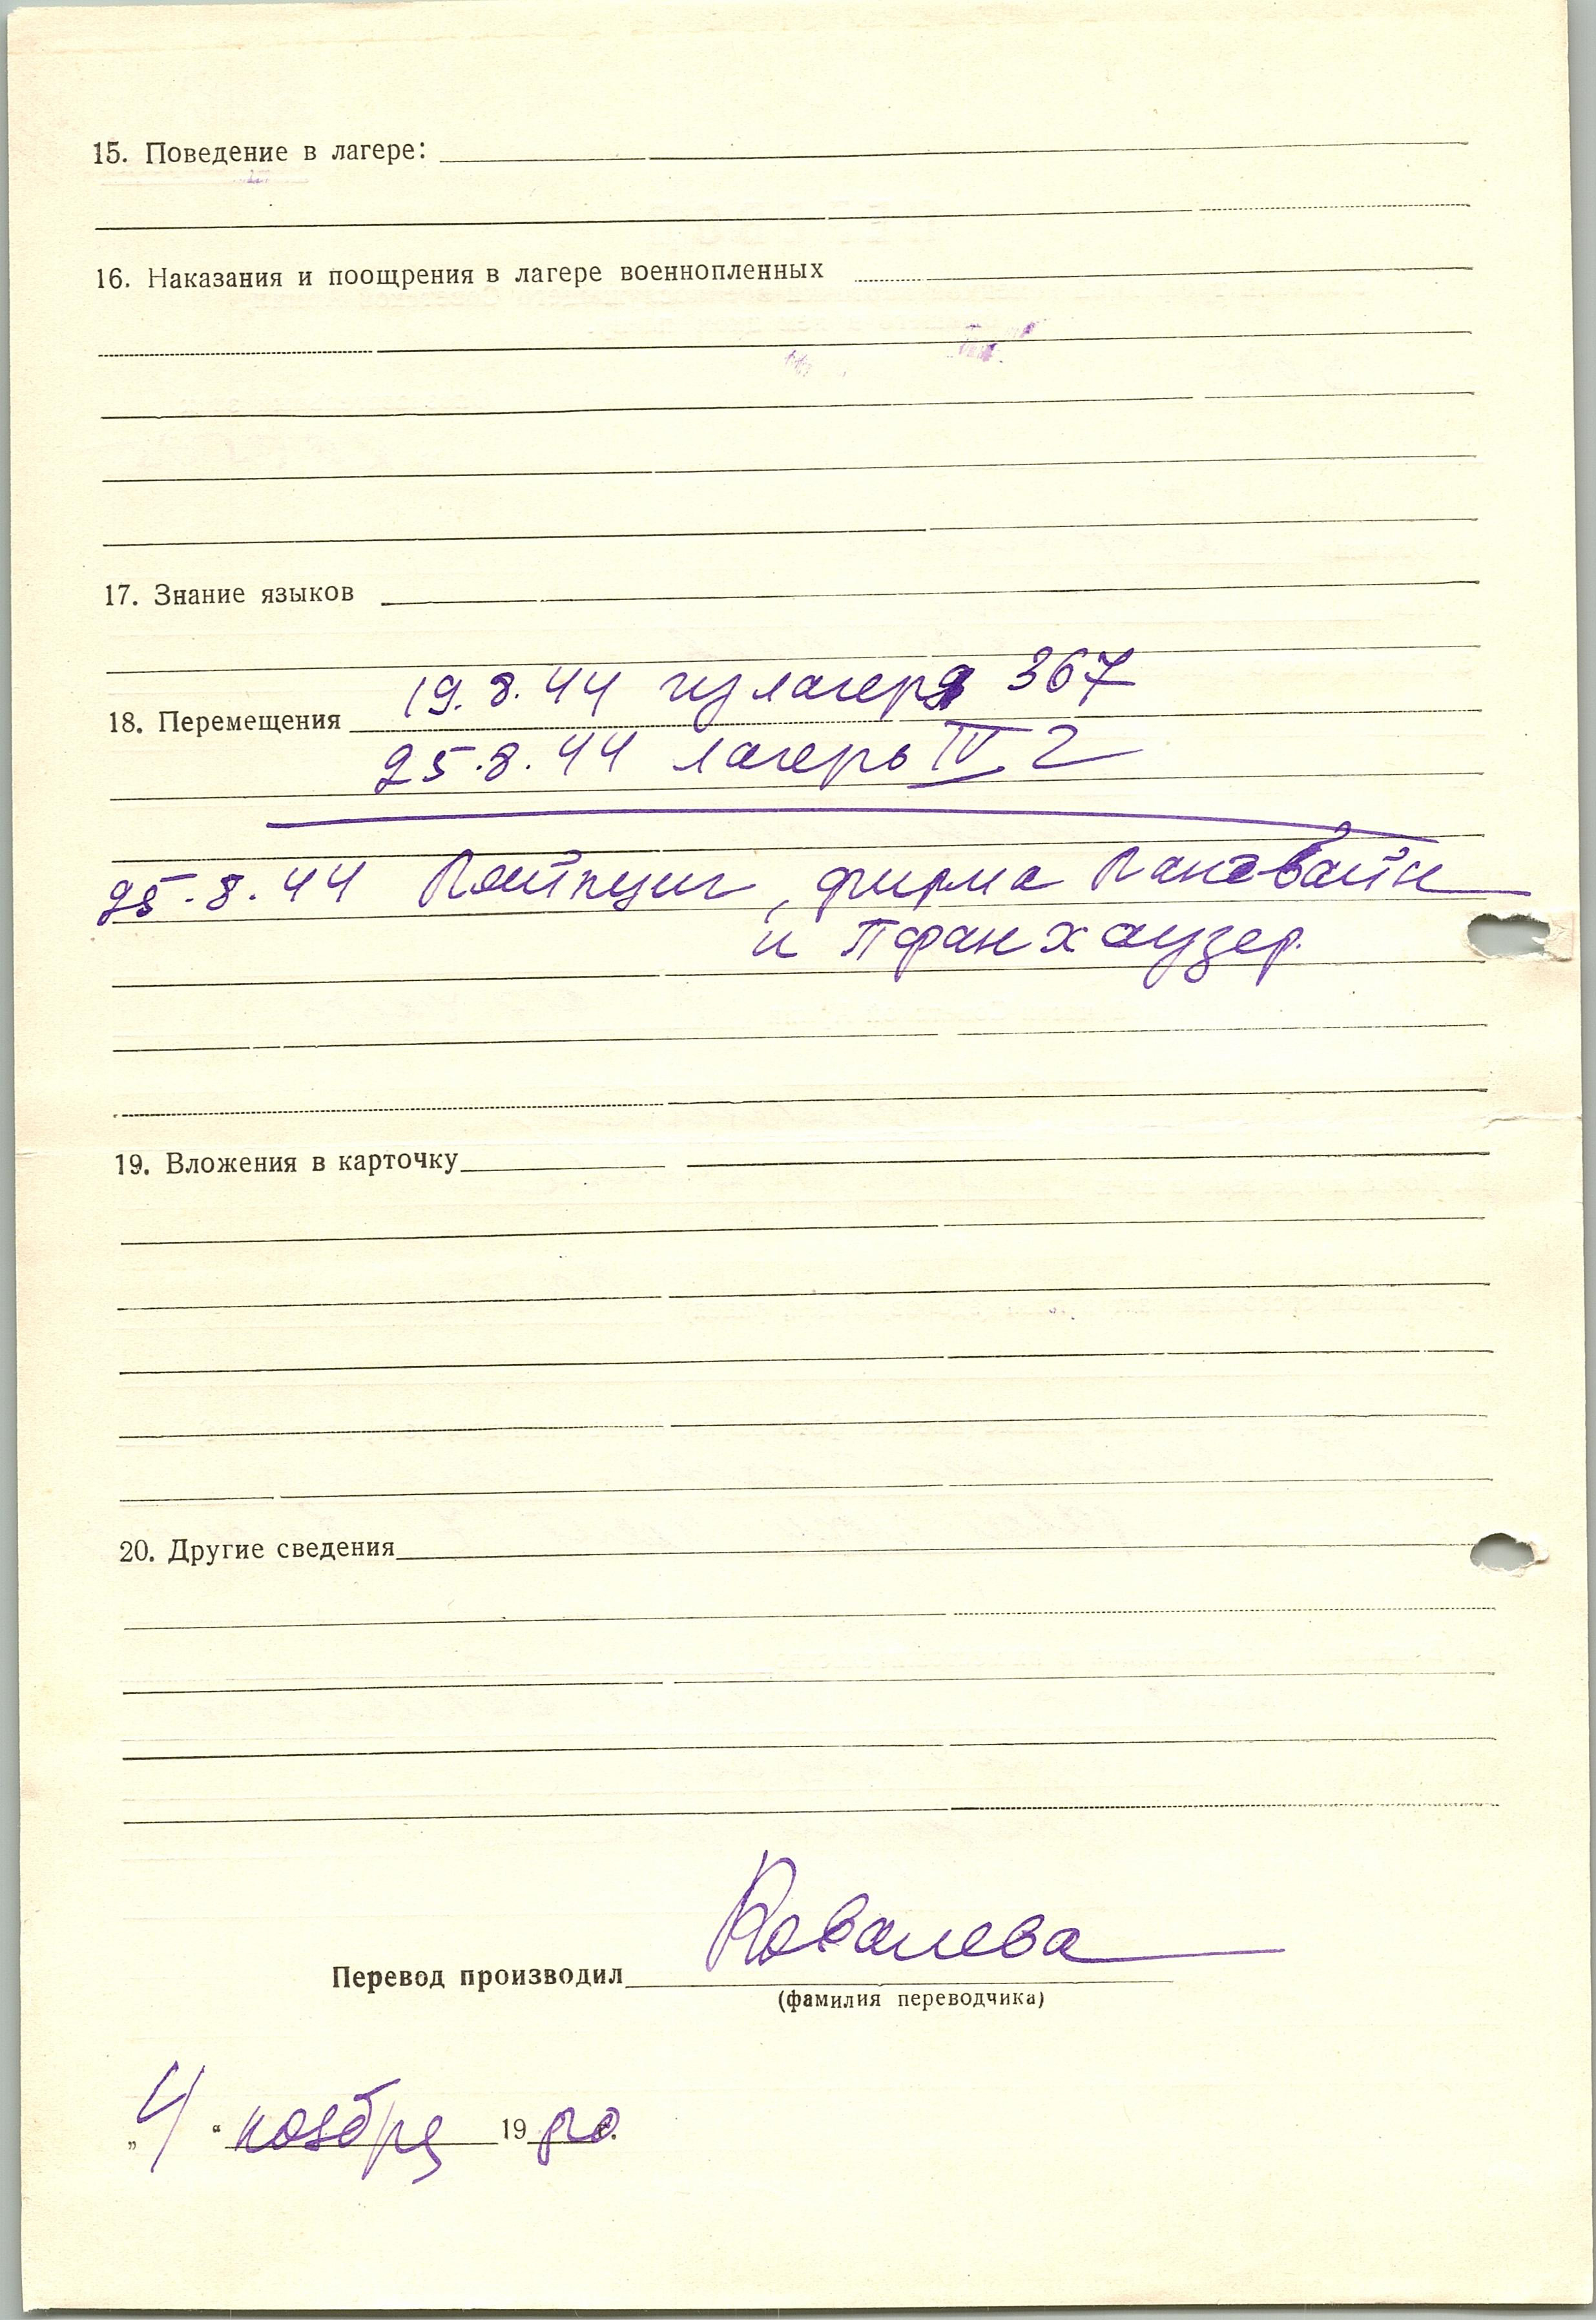 15. Поведение в лагере:
16. Наказания и поощрения в лагере военнопленных
17. Знание языков
19.8.44 из лагеря 367
18. Перемещения
25.8.44 лагерь IV Г
25.8.44 Лейпциг, фирма Лангбайн
и Пфанхаузер.
19. Вложения в карточку
20. Другие сведения
Ковалева
Перевод производил
(фамилия переводчика)
„4“ ноября 19